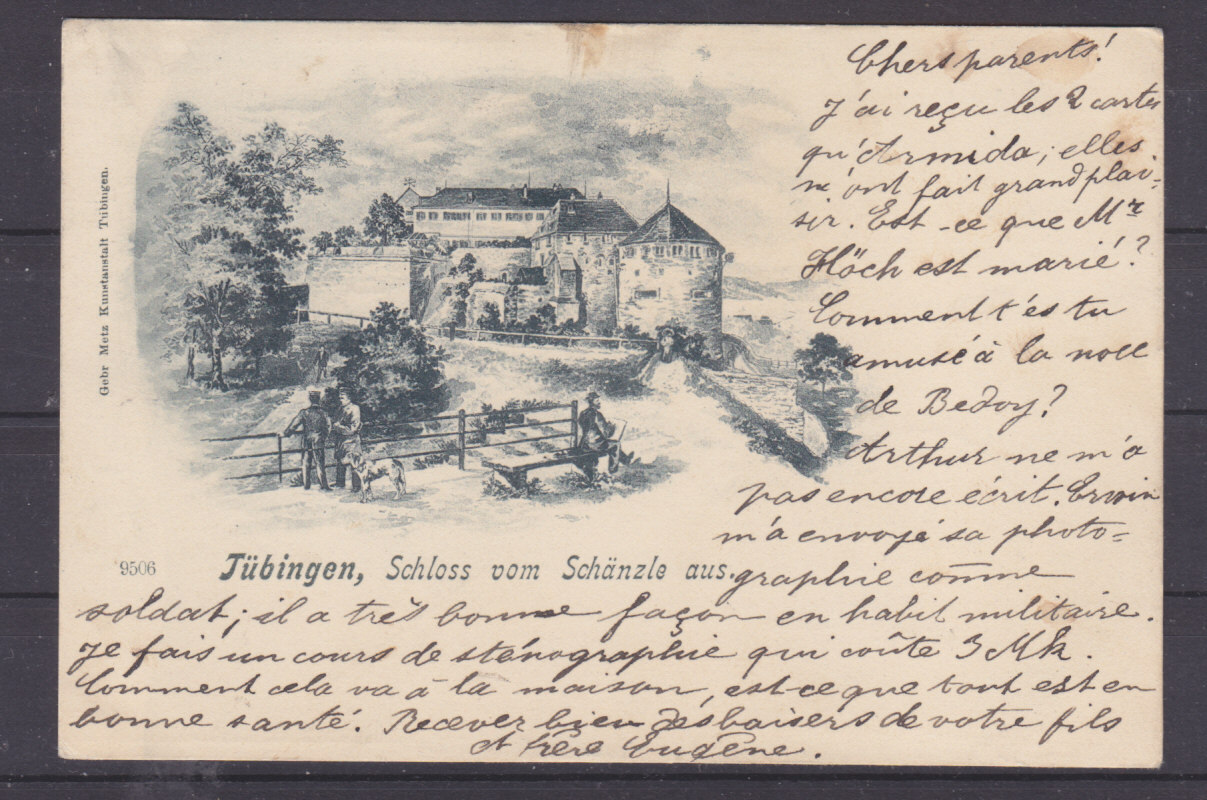 Chers parents!
J'ai reçu les 2 cartes
qu'Armida; elles
m'ont fait grand plai-
sir. Est-ce que Mr
Höch est marié?
Comment t'és tu
amusé à la noce
de Bedoy?
Arthur ne m'a
pas encore écrit. Erwin
m'a envoyé sa photo=
graphie comme
soldat; il a très bonne façon en habit militaire.
Je fais un cours de sténographie qui coûte 3 Mk.
Comment cela va à la maison, est-ce que tout est en
bonne santé. Recever bien des baisers de votre fils
et frère Eugène.
Gebr Metz Kunstanstalt Tübingen.
9506
Tübingen, Schloss vom Schänzle aus.